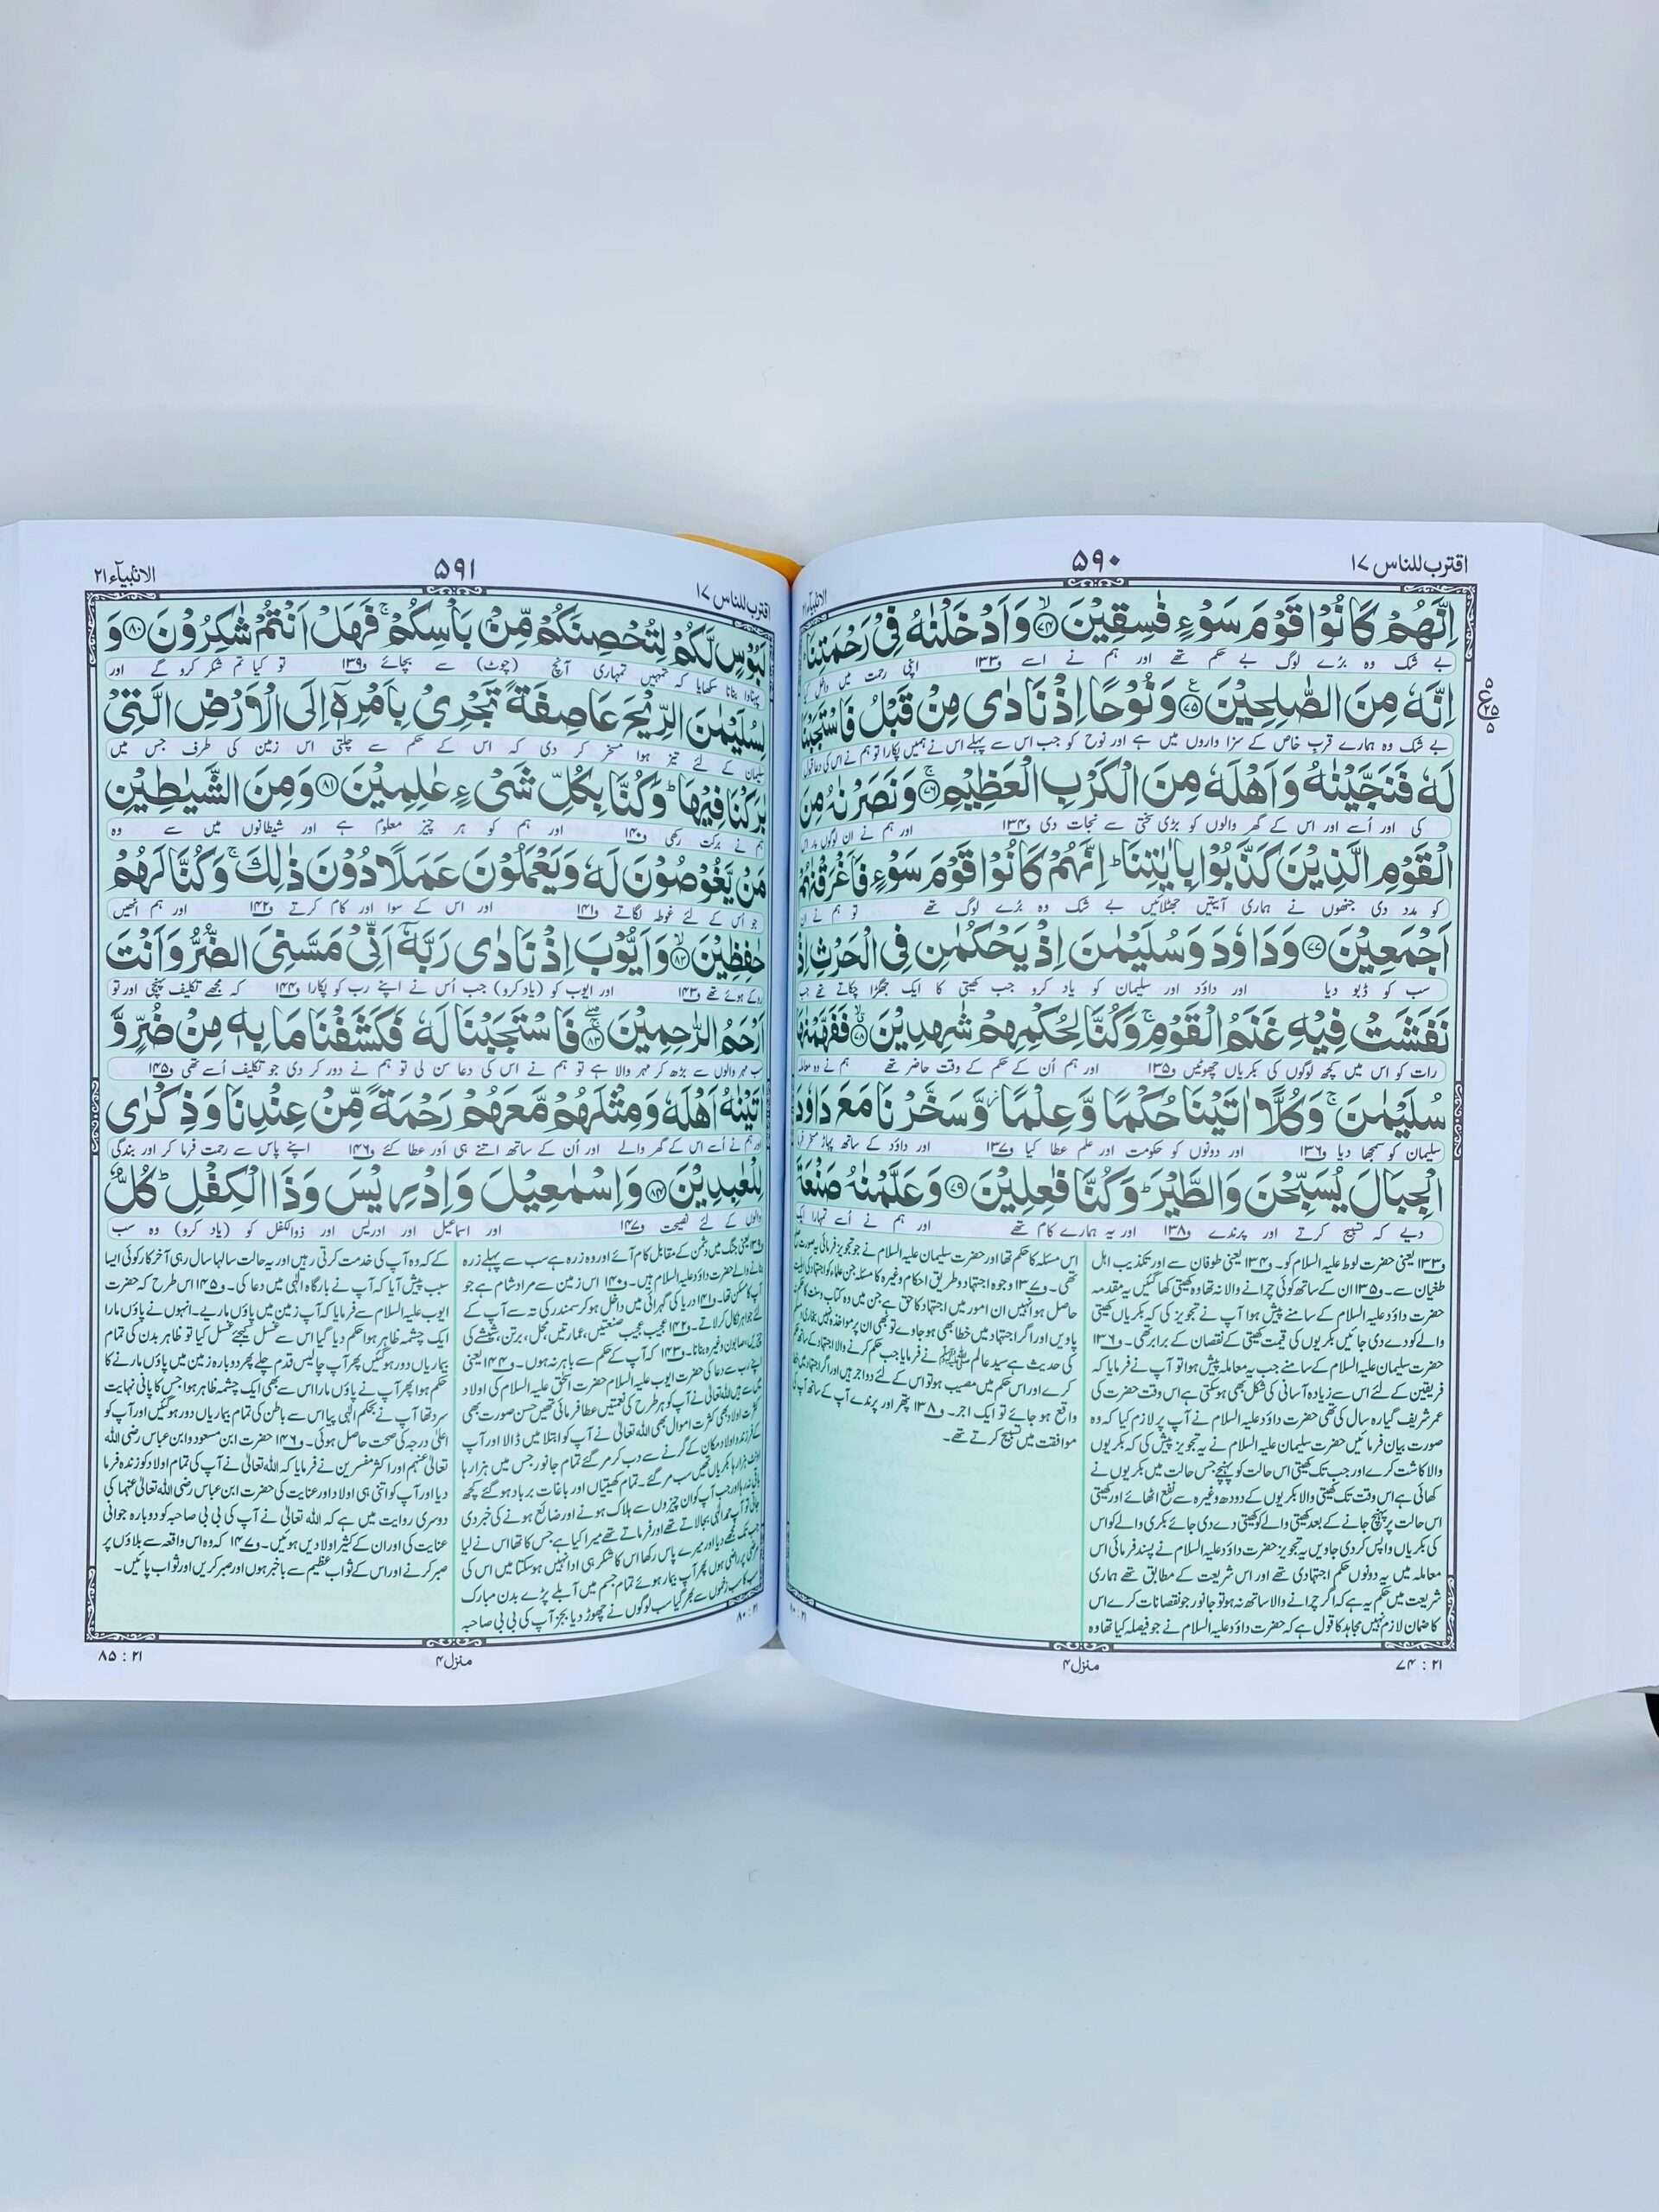 اقترب للناس ۱۷
۵۹۰
الانبیآء ۲۱
اِنَّهُمْ كَانُوْا قَوْمَ سَوْءٍ فٰسِقِیْنَ ﴿۷۴﴾ وَ اَدْخَلْنٰهُ فِیْ رَحْمَتِنَا
بے شک وہ برُے لوگ بے حکم تھے اور ہم نے اسے ف۱۳۳ اپنی رحمت میں داخل کیا
اِنَّهٗ مِنَ الصّٰلِحِیْنَ ﴿۷۵﴾ وَ نُوْحًا اِذْ نَادٰى مِنْ قَبْلُ فَاسْتَجَبْنَا
بے شک وہ ہمارے قرب خاص کے سزا واروں میں ہے اور نوح کو جب اس سے پہلے اس نے ہمیں پکارا تو ہم نے اس کی دعا قبول
لَهٗ فَنَجَّیْنٰهُ وَ اَهْلَهٗ مِنَ الْكَرْبِ الْعَظِیْمِ ﴿۷۶﴾ وَ نَصَرْنٰهُ مِنَ
کی اور اُسے اور اس کے گھر والوں کو بڑی سختی سے نجات دی ف۱۳۴ اور ہم نے ان لوگوں پر اس
الْقَوْمِ الَّذِیْنَ كَذَّبُوْا بِاٰیٰتِنَا ؕ اِنَّهُمْ كَانُوْا قَوْمَ سَوْءٍ فَاَغْرَقْنٰهُمْ
کو مدد دی جنھوں نے ہماری آیتیں جھٹلائیں بے شک وہ برُے لوگ تھے تو ہم نے ان
اَجْمَعِیْنَ ﴿۷۷﴾ وَ دَاوٗدَ وَ سُلَیْمٰنَ اِذْ یَحْكُمٰنِ فِی الْحَرْثِ اِذْ
سب کو ڈبو دیا اور داؤد اور سلیمان کو یاد کرو جب کھیتی کا ایک جھگڑا چکاتے تھے جب
نَفَشَتْ فِیْهِ غَنَمُ الْقَوْمِ ۚ وَ كُنَّا لِحُكْمِهِمْ شٰهِدِیْنَ ﴿۷۸﴾ فَفَهَّمْنٰهَا
رات کو اس میں کچھ لوگوں کی بکریاں چھوٹیں ف۱۳۵ اور ہم اُن کے حکم کے وقت حاضر تھے ہم نے وہ معاملہ
سُلَیْمٰنَ ۚ وَ كُلًّا اٰتَیْنَا حُكْمًا وَّ عِلْمًا ؗ وَّ سَخَّرْنَا مَعَ دَاوٗدَ
سلیمان کو سمجھا دیا ف۱۳۶ اور دونوں کو حکومت اور علم عطا کیا ف۱۳۷ اور داؤد کے ساتھ پہاڑ مسخر فرما
الْجِبَالَ یُسَبِّحْنَ وَ الطَّیْرَ ؕ وَ كُنَّا فٰعِلِیْنَ ﴿۷۹﴾ وَ عَلَّمْنٰهُ صَنْعَةَ
دیے کہ تسبیح کرتے اور پرندے ف۱۳۸ اور یہ ہمارے کام تھے اور ہم نے اُسے تمہارا ایک
ف۱۳۳ یعنی حضرت لوط علیہ السلام کو۔ ف۱۳۴ یعنی طوفان سے اور تکذیب اہل
طغیان سے۔ ف۱۳۵ ان کے ساتھ کوئی چرانے والا نہ تھا وہ کھیتی کھا گئیں یہ مقدمہ
حضرت داؤد علیہ السلام کے سامنے پیش ہوا آپ نے تجویز کی کہ بکریاں کھیتی
والے کو دے دی جائیں بکریوں کی قیمت کھیتی کے نقصان کے برابر تھی۔ ف۱۳۶
حضرت سلیمان علیہ السلام کے سامنے جب یہ معاملہ پیش ہوا تو آپ نے فرمایا کہ
فریقین کے لئے اس سے زیادہ آسانی کی شکل بھی ہو سکتی ہے اس وقت حضرت کی
عمر شریف گیارہ سال کی تھی حضرت داؤد علیہ السلام نے آپ پر لازم کیا کہ وہ
صورت بیان فرمائیں حضرت سلیمان علیہ السلام نے یہ تجویز پیش کی کہ بکریوں
والا کاشت کرے اور جب تک کھیتی اس حالت کو پہنچے جس حالت میں بکریوں نے
کھائی ہے اس وقت تک کھیتی والا بکریوں کے دودھ وغیرہ سے نفع اٹھائے اور کھیتی
اس حالت پر پہنچ جانے کے بعد کھیتی والے کو کھیتی دے دی جائے بکری والے کو اس
کی بکریاں واپس کر دی جاویں یہ تجویز حضرت داؤد علیہ السلام نے پسند فرمائی اس
معاملہ میں یہ دونوں حکم اجتہادی تھے اور اس شریعت کے مطابق تھے ہماری
شریعت میں حکم یہ ہے کہ اگر چرانے والا ساتھ نہ ہو تو جانور جو نقصانات کرے اس
کا ضمان لازم نہیں مجاہد کا قول ہے کہ حضرت داؤد علیہ السلام نے جو فیصلہ کیا تھا وہ
اس مسئلہ کا حکم تھا اور حضرت سلیمان علیہ السلام نے جو تجویز فرمائی یہ صورت صلح
تھی۔ ف۱۳۷ وجوہ اجتہاد و طریق احکام وغیرہ کا مسئلہ جن علماء کو اجتہاد کی اہلیت
حاصل ہو انہیں ان امور میں اجتہاد کا حق ہے جن میں وہ کتاب و سنت کا حکم نہ
پاویں اور اگر اجتہاد میں خطا بھی ہو جاوے تو بھی ان پر مواخذہ نہیں بخاری و مسلم
کی حدیث ہے سید عالم ﷺ نے فرمایا جب حکم کرنے والا اجتہاد کے ساتھ حکم
کرے اور اس حکم میں مصیب ہو تو اس کے لئے دو اجر ہیں اور اگر اجتہاد میں خطا
واقع ہو جائے تو ایک اجر۔ ف۱۳۸ پتھر اور پرندے آپ کے ساتھ آپ کی
موافقت میں تسبیح کرتے تھے۔
۷۴ : ۲۱
منزل ۴
۸۰ : ۲۱
اقترب للناس ۱۷
۵۹۱
الانبیآء ۲۱
لَبُوْسٍ لَّكُمْ لِتُحْصِنَكُمْ مِّنْۢ بَاْسِكُمْ ۚ فَهَلْ اَنْتُمْ شٰكِرُوْنَ ﴿۸۰﴾ وَ
پہناوا بنانا سکھایا کہ تمہیں تمہاری آنچ (چوٹ) سے بچائے ف۱۳۹ تو کیا تم شکر کرو گے اور
لِسُلَیْمٰنَ الرِّیْحَ عَاصِفَةً تَجْرِیْ بِاَمْرِهٖۤ اِلَى الْاَرْضِ الَّتِیْ
سلیمان کے لئے تیز ہوا مسخر کر دی کہ اس کے حکم سے چلتی اس زمین کی طرف جس میں
بٰرَكْنَا فِیْهَا ؕ وَ كُنَّا بِكُلِّ شَیْءٍ عٰلِمِیْنَ ﴿۸۱﴾ وَ مِنَ الشَّیٰطِیْنِ
ہم نے برکت رکھی ف۱۴۰ اور ہم کو ہر چیز معلوم ہے اور شیطانوں میں سے وہ
مَنْ یَّغُوْصُوْنَ لَهٗ وَ یَعْمَلُوْنَ عَمَلًا دُوْنَ ذٰلِكَ ۚ وَ كُنَّا لَهُمْ
جو اُس کے لئے غوطہ لگاتے ف۱۴۱ اور اس کے سوا اور کام کرتے ف۱۴۲ اور ہم انھیں
حٰفِظِیْنَ ﴿۸۲﴾ وَ اَیُّوْبَ اِذْ نَادٰى رَبَّهٗۤ اَنِّیْ مَسَّنِیَ الضُّرُّ وَ اَنْتَ
روکے ہوئے تھے ف۱۴۳ اور ایوب کو (یاد کرو) جب اُس نے اپنے رب کو پکارا ف۱۴۴ کہ مجھے تکلیف پہنچی اور تو
اَرْحَمُ الرّٰحِمِیْنَ ﴿۸۳﴾ فَاسْتَجَبْنَا لَهٗ فَكَشَفْنَا مَا بِهٖ مِنْ ضُرٍّ وَّ
سب مہر والوں سے بڑھ کر مہر والا ہے تو ہم نے اس کی دعا سن لی تو ہم نے دور کر دی جو تکلیف اُسے تھی ف۱۴۵
اٰتَیْنٰهُ اَهْلَهٗ وَ مِثْلَهُمْ مَّعَهُمْ رَحْمَةً مِّنْ عِنْدِنَا وَ ذِكْرٰى
اور ہم نے اُسے اس کے گھر والے اور اُن کے ساتھ اتنے ہی اور عطا کئے ف۱۴۶ اپنے پاس سے رحمت فرما کر اور بندگی
لِلْعٰبِدِیْنَ ﴿۸۴﴾ وَ اِسْمٰعِیْلَ وَ اِدْرِیْسَ وَ ذَا الْكِفْلِ ؕ كُلٌّ
والوں کے لئے نصیحت ف۱۴۷ اور اسماعیل اور ادریس اور ذوالکفل کو (یاد کرو) وہ سب
ف۱۳۹ یعنی جنگ میں دشمن کے مقابل کام آئے اور وہ زرہ ہے سب سے پہلے زرہ
بنانے والے حضرت داؤد علیہ السلام ہیں۔ ف۱۴۰ اس زمین سے مراد شام ہے جو
آپ کا مسکن تھا۔ ف۱۴۱ دریا کی گہرائی میں داخل ہو کر سمندر کی تہ سے آپ کے
لئے جواہر نکال کر لاتے۔ ف۱۴۲ عجیب عجیب صنعتیں، عمارتیں محل، برتن، شیشے کی
چیزیں، صابون وغیرہ بنانا۔ ف۱۴۳ کہ آپ کے حکم سے باہر نہ ہوں۔ ف۱۴۴ یعنی
اپنے رب سے دعا کی حضرت ایوب علیہ السلام حضرت اسحٰق علیہ السلام کی اولاد
میں سے ہیں اللہ تعالیٰ نے آپ کو ہر طرح کی نعمتیں عطا فرمائی تھیں حسن صورت بھی
کثرت اولاد بھی کثرت اموال بھی اللہ تعالیٰ نے آپ کو ابتلا میں ڈالا اور آپ
کے فرزند و اولاد مکان کے گرنے سے دب کر مر گئے تمام جانور جس میں ہزار ہا
اونٹ ہزار ہا بکریاں تھیں سب مر گئے۔ تمام کھیتیاں اور باغات برباد ہو گئے کچھ
باقی نہ رہا اور جب آپ کو ان چیزوں کے ہلاک ہونے اور ضائع ہونے کی خبر دی
جاتی تو آپ حمد الٰہی بجا لاتے تھے اور فرماتے تھے میرا کیا ہے جس کا تھا اس نے لیا
جب تک مجھے دیا اور میرے پاس رکھا اس کا شکر ہی ادا نہیں ہو سکتا میں اس کی
مرضی پر راضی ہوں پھر آپ بیمار ہوئے تمام جسم میں آبلے پڑے بدن مبارک
سب کا سب زخموں سے بھر گیا سب لوگوں نے چھوڑ دیا بجز آپ کی بی بی صاحبہ
کے کہ وہ آپ کی خدمت کرتی رہیں اور یہ حالت سالہا سال رہی آخر کار کوئی ایسا
سبب پیش آیا کہ آپ نے بارگاہ الٰہی میں دعا کی۔ ف۱۴۵ اس طرح کہ حضرت
ایوب علیہ السلام سے فرمایا کہ آپ زمین میں پاؤں ماریے۔ انہوں نے پاؤں مارا
ایک چشمہ ظاہر ہوا حکم دیا گیا اس سے غسل کیجئے غسل کیا تو ظاہر بدن کی تمام
بیماریاں دور ہو گئیں پھر آپ چالیس قدم چلے پھر دوبارہ زمین میں پاؤں مارنے کا
حکم ہوا پھر آپ نے پاؤں مارا اس سے بھی ایک چشمہ ظاہر ہوا جس کا پانی نہایت
سرد تھا آپ نے بحکم الٰہی پیا اس سے باطن کی تمام بیماریاں دور ہو گئیں اور آپ کو
اعلیٰ درجہ کی صحت حاصل ہوئی۔ ف۱۴۶ حضرت ابن مسعود و ابن عباس رضی اللہ
تعالیٰ عنہم اور اکثر مفسرین نے فرمایا کہ اللہ تعالیٰ نے آپ کی تمام اولاد کو زندہ فرما
دیا اور آپ کو اتنی ہی اولاد اور عنایت کی حضرت ابن عباس رضی اللہ تعالیٰ عنہما کی
دوسری روایت میں ہے کہ اللہ تعالیٰ نے آپ کی بی بی صاحبہ کو دوبارہ جوانی
عنایت کی اور ان کے کثیر اولادیں ہوئیں۔ ف۱۴۷ کہ وہ اس واقعہ سے بلاؤں پر
صبر کرنے اور اس کے ثواب عظیم سے باخبر ہوں اور صبر کریں اور ثواب پائیں۔
۸۰ : ۲۱
منزل ۴
۸۵ : ۲۱